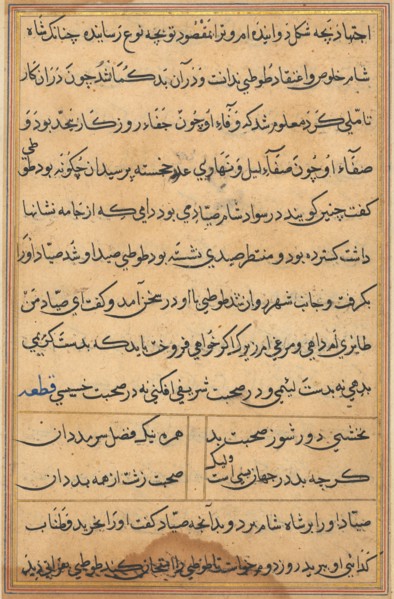 اجتهاد بچه شکل دوانیده ام و ترا بمقصود تو بچه نوع رسانیده چنانکه شاه
شام خلوص و اعتقاد طوطی ندانست و در آن بد کمان شد چون در آن کار
تاملی کرد معلوم شد که وفاء او چون جفاء روزکار بیحد بود و
صفاء او چون صفاء لیل و نهار بی خجسته پرسید آن چکونه بود طوطی
کفت چنین کویند در سواد شام صیادی بود دامی که از خامه نشانها
داشت کسترده بود و منتظر صیدی نشسته بود طوطی صید او شد صیاد او را
بکرفت و جانب شهر روان شد طوطی با او در سخن آمد و کفت ای صیاد من
طایری ام داهی و مرغی ام زیرک اکر خواهی فروخت باید که بدست کریمی
بدهی نه بدست لئیمی و در صحبت شریفی افکنی نه در صحبت خسیسی قطعه
نخشبی دور شو ز صحبت بد
همره نیک فضل سرمد دان
کرچه بد در جهان بسی است ولیک
صحبت زشت از همه بد دان
صیاد او را بر شاه شام برد و بدانچه صیاد کفت او را بخرید و قطناب
روز دوم خواست تا طوطی را امتحان کند طوطی